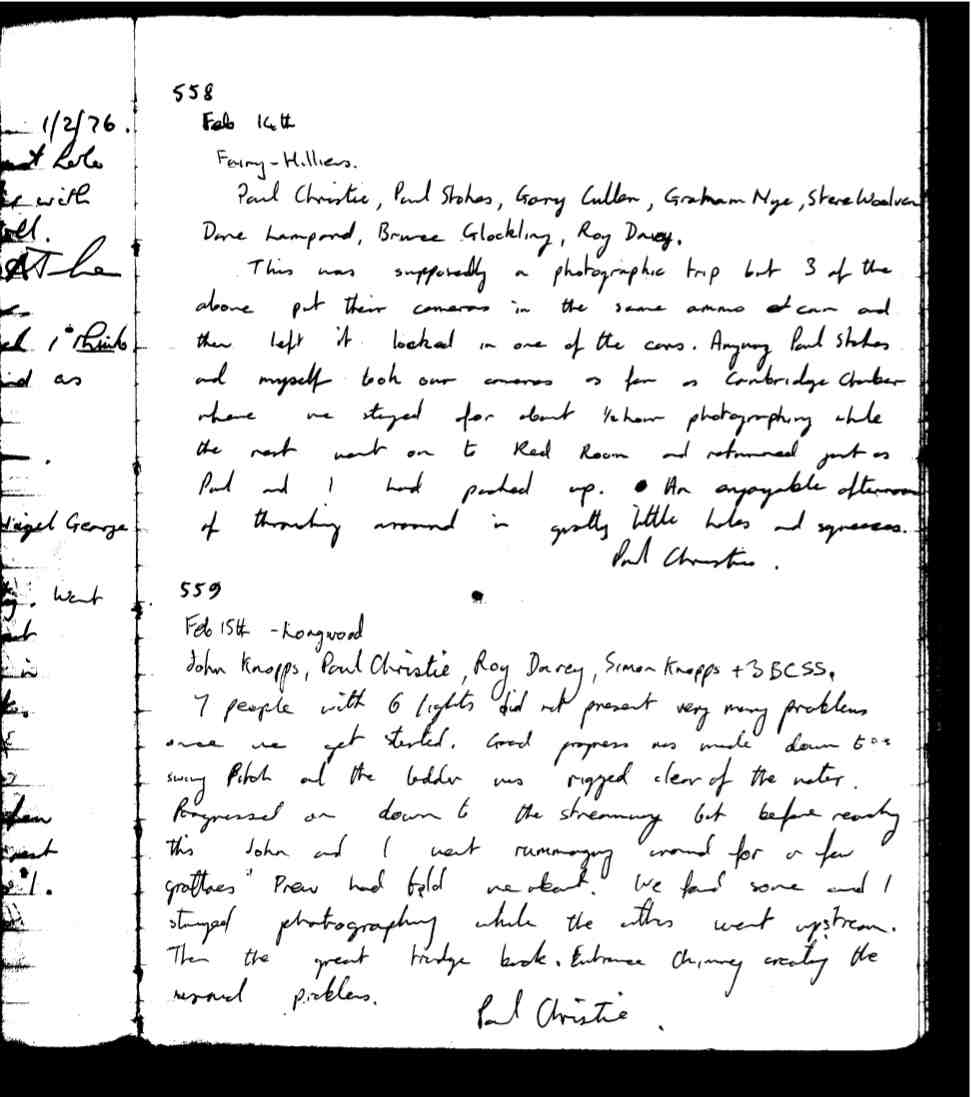 1/2/76.
hole
with

558
Feb 14th
Fairy-Hilliers.
Paul Christie, Paul Stokes, Gary Cullen, Graham Nye, Steve Woolven
Dave Lampard, Bruce Glockling, Roy Davey.
This was supposedly a photographic trip but 3 of the
above put their cameras in the same ammo can and
then left it locked in one of the cars. Anyway Paul Stokes
and myself took our cameras as far as Cambridge Chamber
where we stayed for about ½ hour photographing while
the rest went on to Red Room and returned just as
Paul and I had packed up. An enjoyable afternoon
of thrutching around in grotty little holes and squeezes.
Paul Christie.
I think
as
Nigel George
went
559
Feb 15th - Longwood
John Knapps, Paul Christie, Roy Davey, Simon Knapps + 3 BCSS.
7 people with 6 lights did not present very many problems
once we got started. Good progress was made down to
swing Pitch and the ladder was rigged clear of the water.
Progressed on down to the streamway but before reaching
this John and I went rummaging around for a few
grottoes Prew had told me about. We found some and I
stayed photographing while the others went upstream.
Then the great trudge back. Entrance Chimney creating the
usual problems.
Paul Christie.